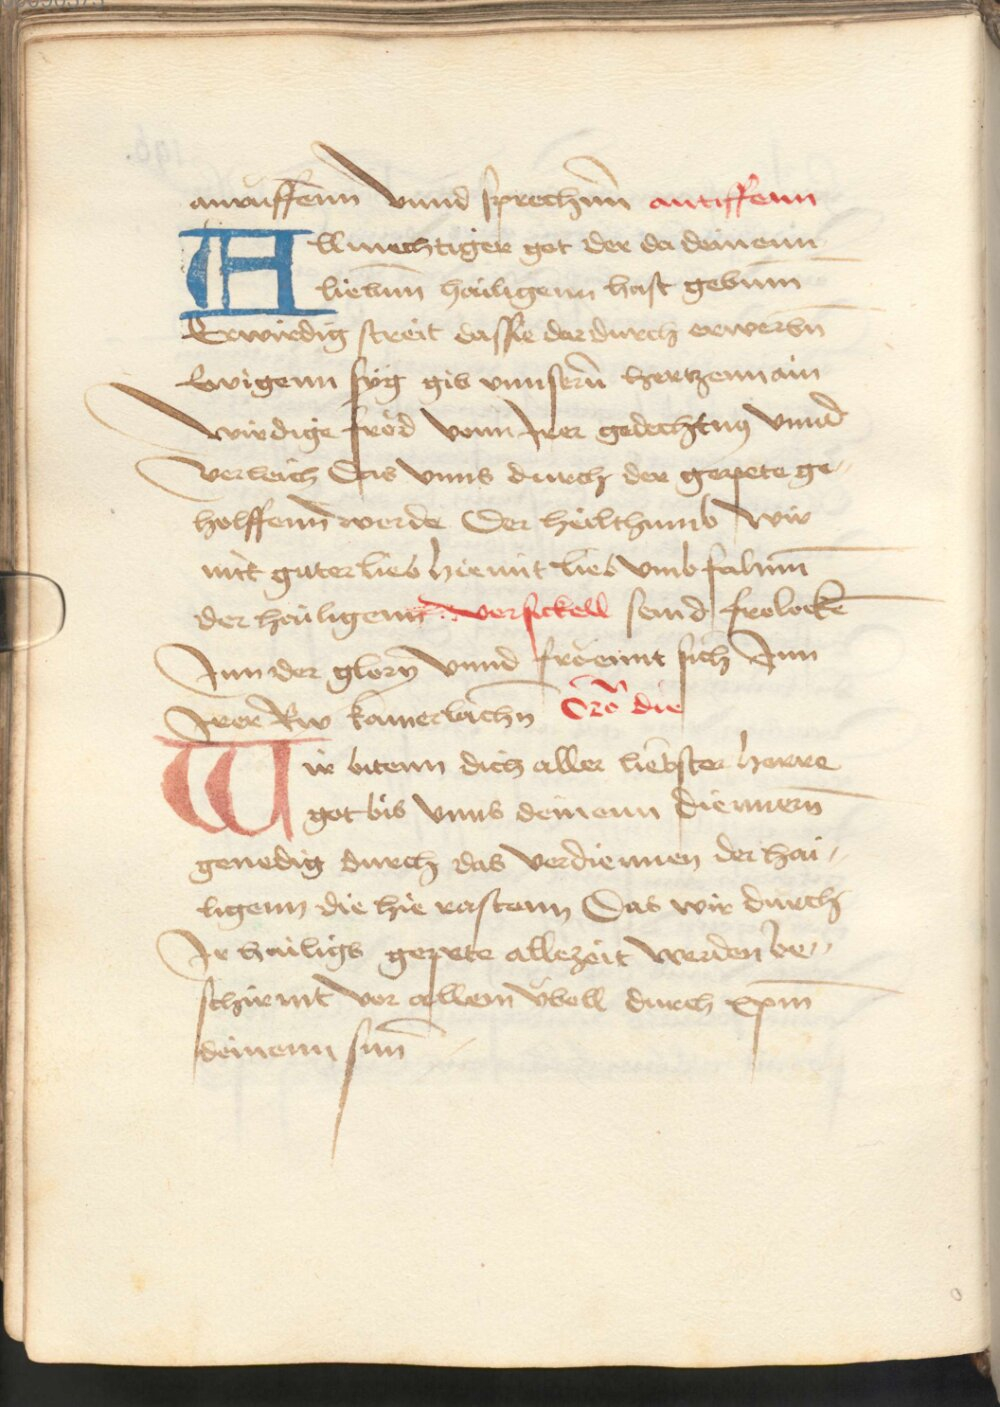 anruffenn vnnd sprechenn antiffenn
Allmechtiger got der da deinenn
liebenn hailigenn hast gebenn
Erwirdig streit das sie dardurch erwerbn
Ewigenn syg gib vnnsern hertzenn ain
wirdige fröd vonn Irer gedechtnus vnnd
verleich Das vnns durch der gepete ge„
holffenn werde Der heilthumb wir
mit guter lieb hiemit lieb vmbfahenn
der hailigenn versickell seind frolocken
Inn der glory vnnd fröennt sich Inn
Irer Rw kamerlächn Oro die
Wir bitenn dich aller liebster herre
got bis vnns deinenn dienern
genedig durch das verdiennen der hai„
ligenn die hie rastenn Das wir durch
Ir hailigs gepete allezeit werden be„
schirmt vor allem übell durch xpm
deinenn sun